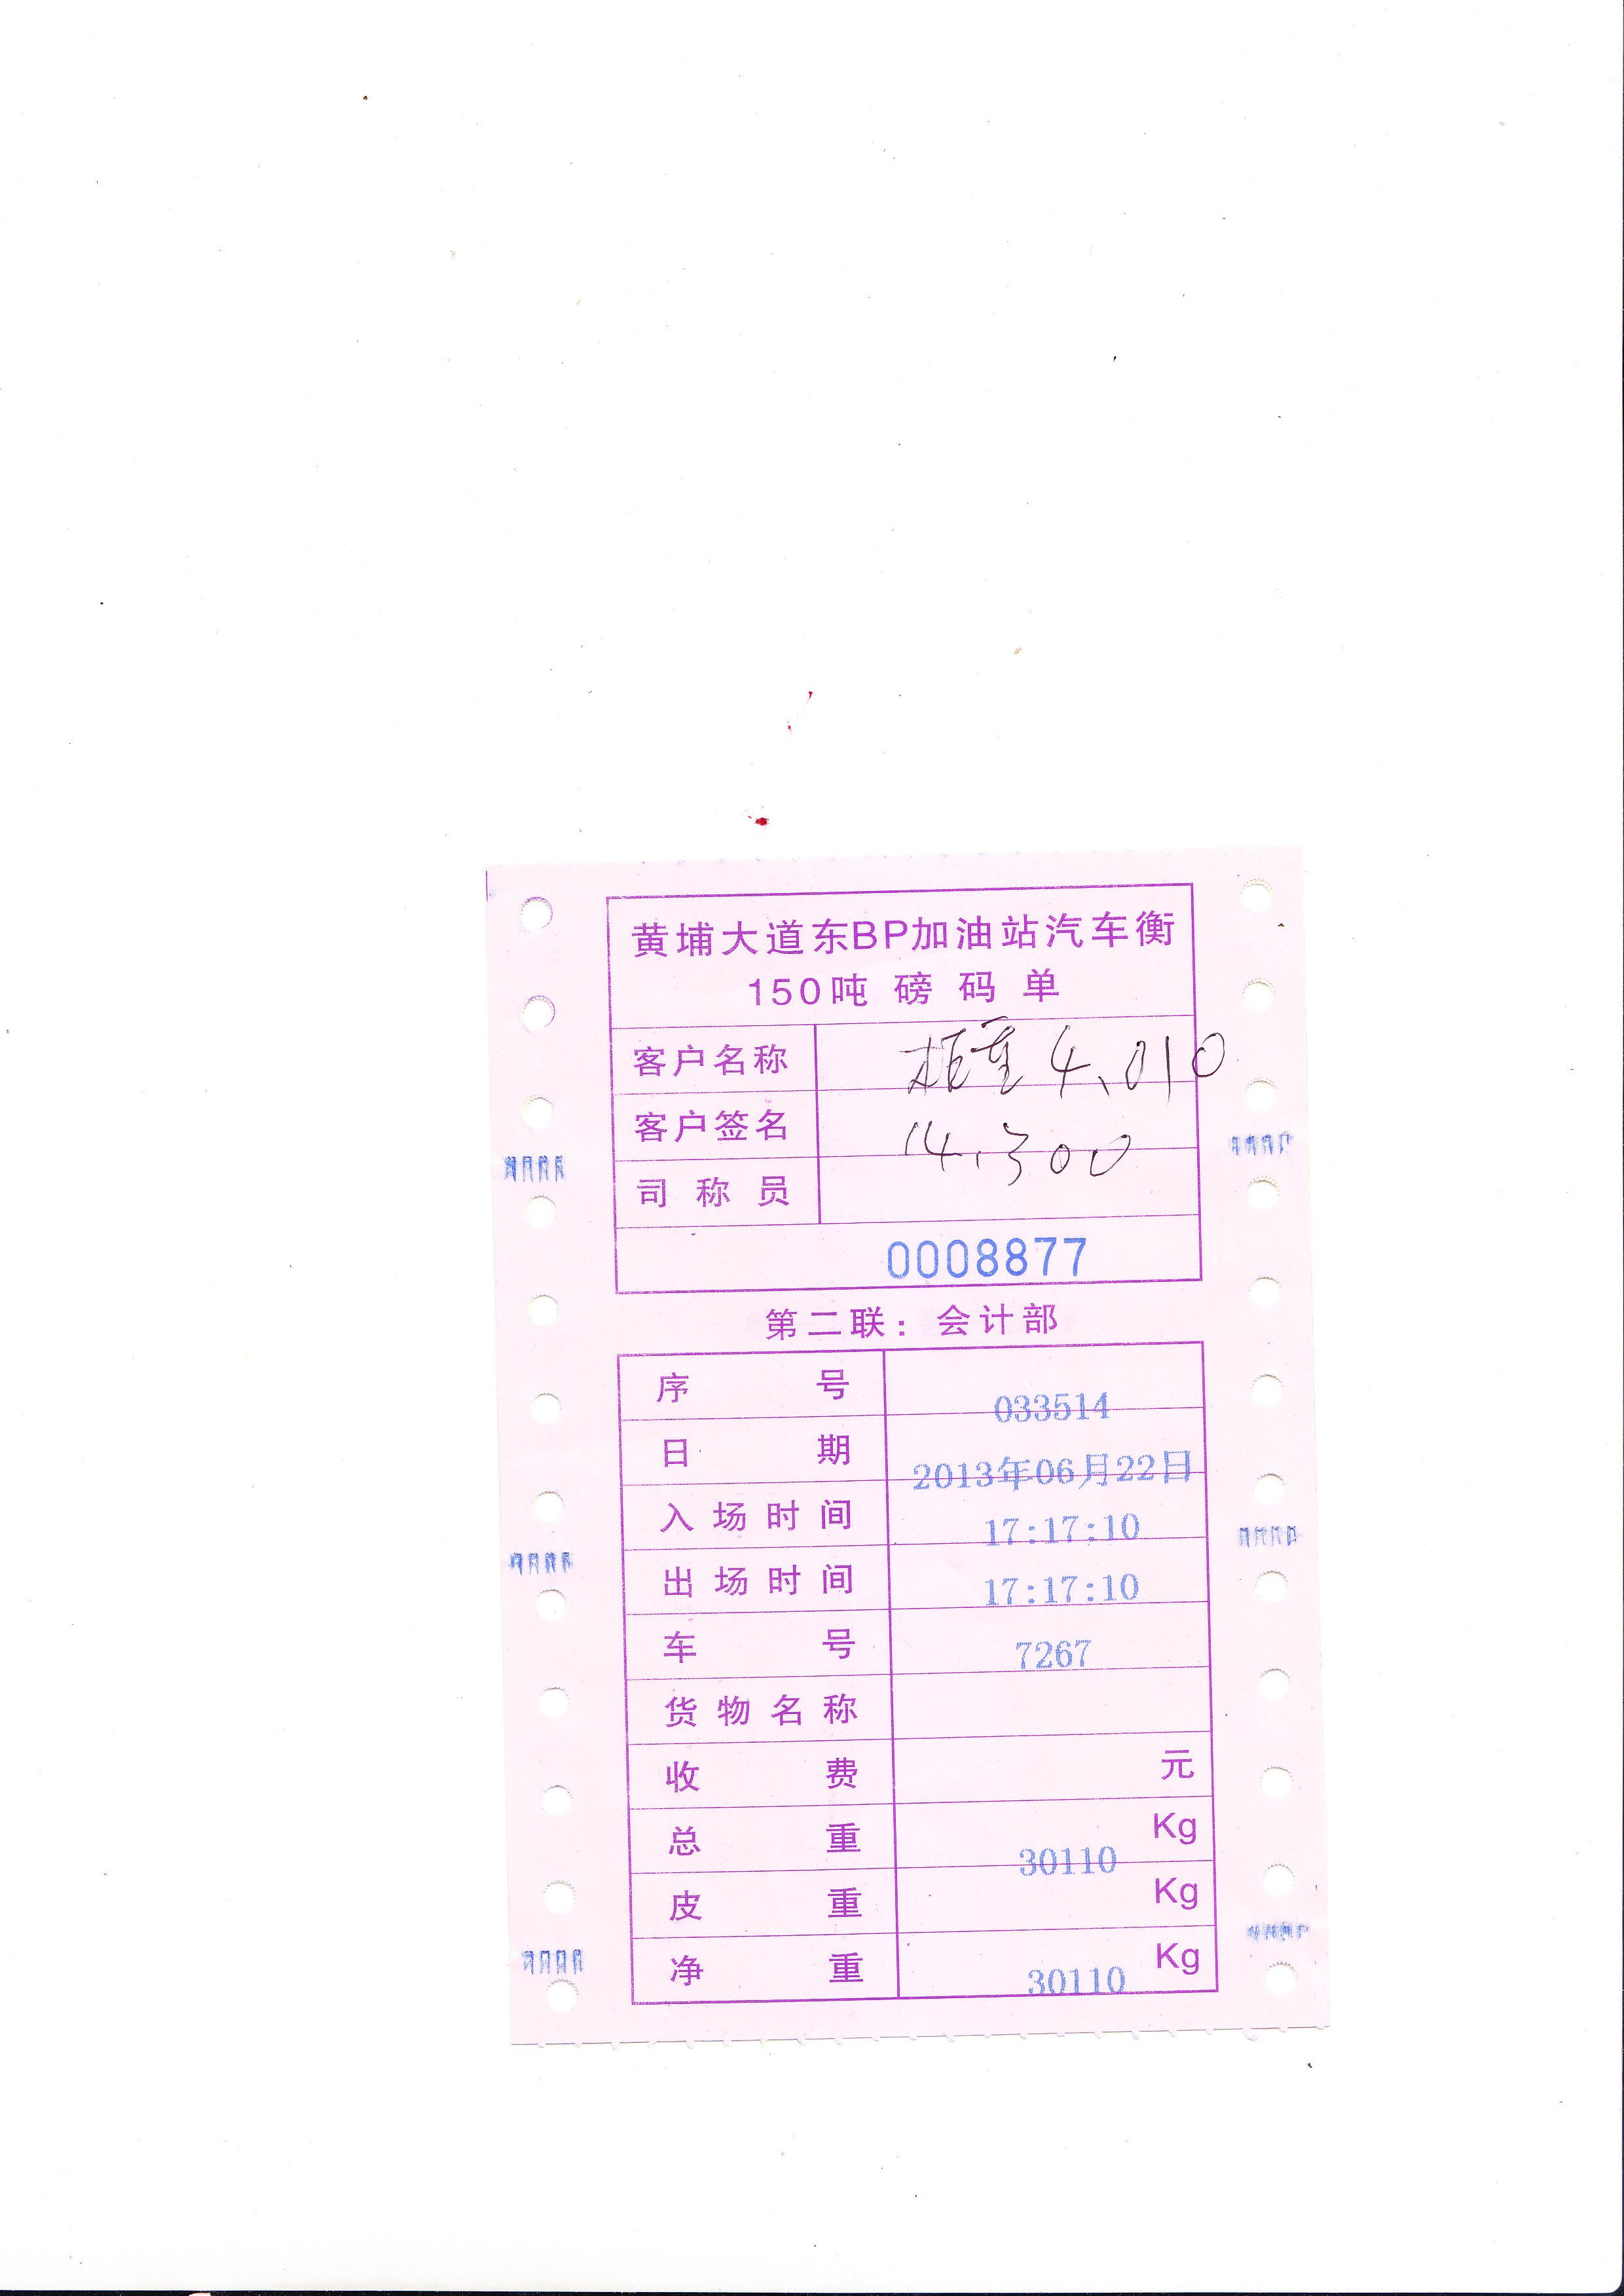 黄埔大道东BP加油站汽车衡
150吨 磅 码 单
客户名称 柜重 4.010
客户签名 14.300
司 称 员
0008877
第二联：会计部
序 号 033514
日 期 2013年06月22日
入 场 时 间 17:17:10
出 场 时 间 17:17:10
车 号 7267
货 物 名 称
收 费 元
总 重 30110 Kg
皮 重 Kg
净 重 30110 Kg